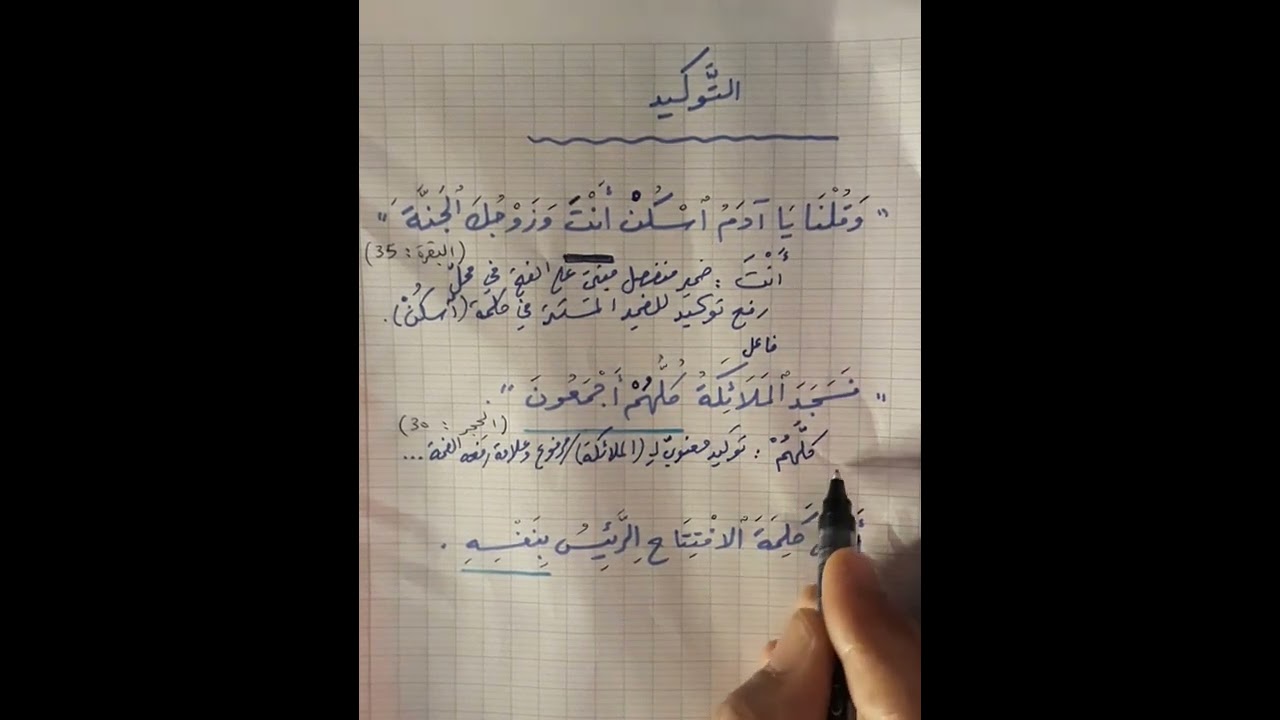 التَّوكيد
"وَقُلْنَا يَا آدَمُ ٱسْكُنْ أَنْتَ وَزَوْجُكَ ٱلْجَنَّةَ"
(البقرة : 35)
أَنْتَ : ضمير منفصل مبني على الفتح في محلّ
رفع توكيد للضمير المستتر في كلمة (ٱسكُنْ).
فاعل
"فَسَجَدَ ٱلْمَلَائِكَةُ كُلُّهُمْ أَجْمَعُونَ".
(الحجر : 30)
كلُّهُمْ : توكيد معنويّ لِـ (الملائكة)/مرفوع وعلامة رفعه الضمة ...
كَلِمَةَ ٱلافْتِتَاحِ الرَّئِيسُ بِنَفْسِهِ .